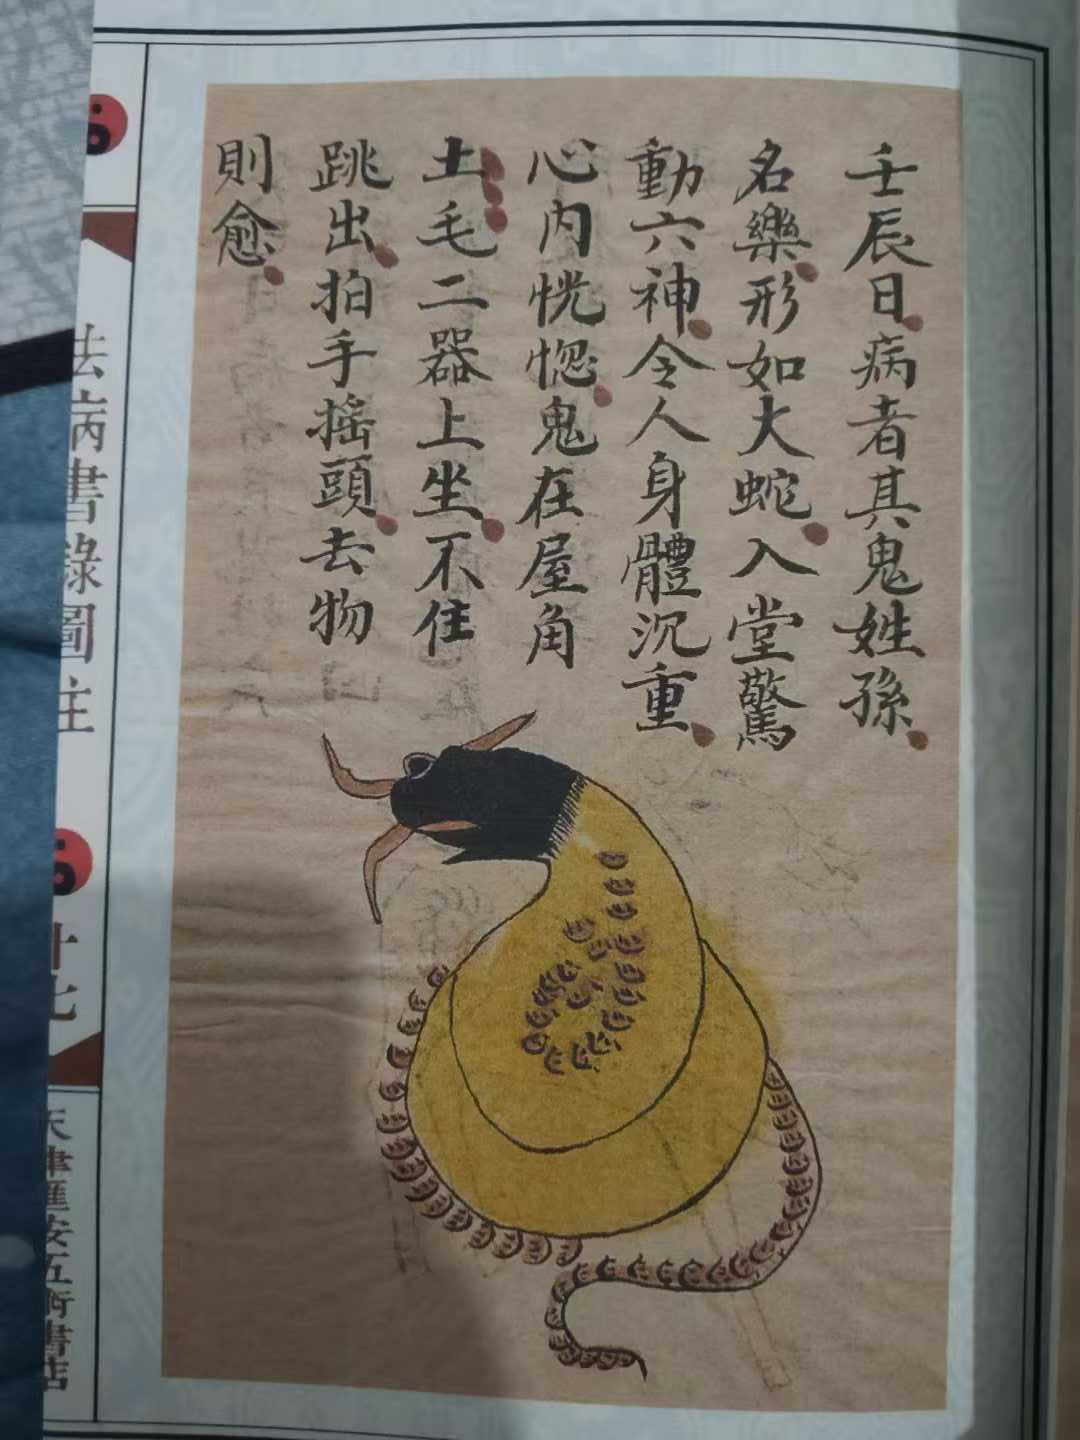 壬辰日病者其鬼姓孫
名樂形如大蛇入堂驚
動六神令人身體沉重
心內恍惚鬼在屋角
土毛二器上坐不住
跳出拍手搖頭去物
則愈
法病書錄圖注
廿七
天津匯安五術書店